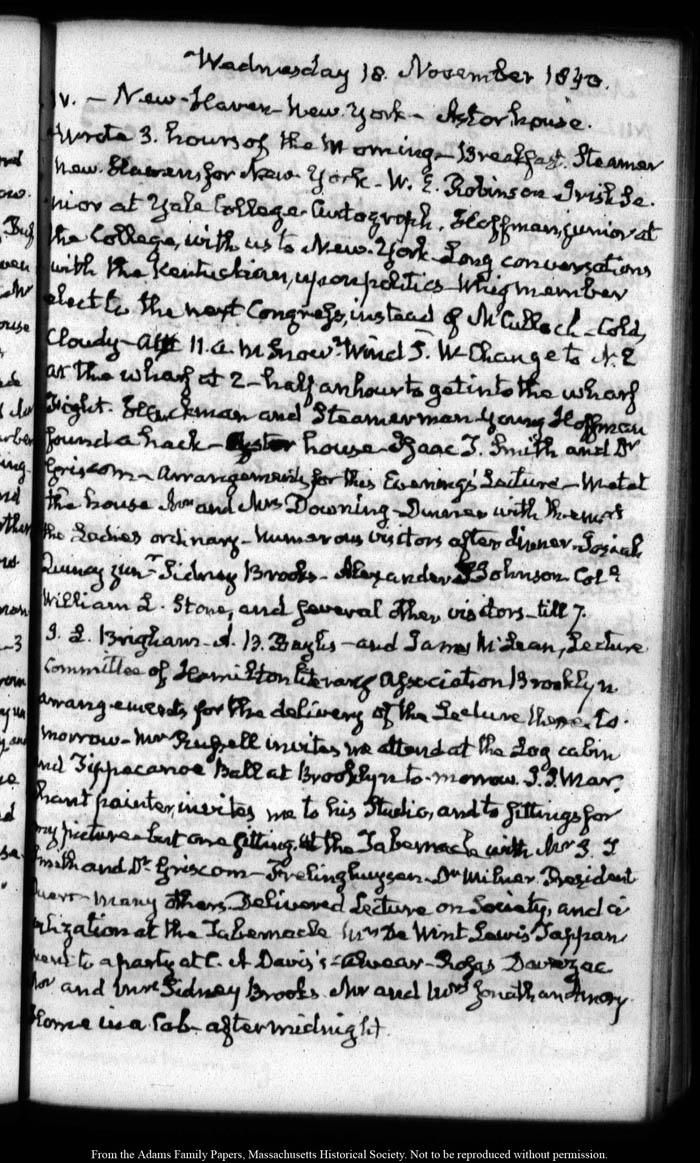 Wednesday 18. November 1840.
IV. – New-Haven – New. York – Astor house.
Wrote 3. hours of the morning – Breakfast. Steamer
New Haven for New York – W. E. Robinson Irish Se-
nior at Yale College. Autograph. Hoffman, junior at
the College, with us to New-York – Long conversations
with the Kentuckian, upon politics – Whig member
elect to the next Congress, instead of McCulloch – Cold,
Cloudy – at 11. a.m Snow. Wind S. W. Change to N. E
at the wharf at 2 – half an hour to get into the wharf
Fight. Hackman and Steamerman – Young Hoffman
found a hack – Astor house – Isaac T. Smith and Dr
Griscom – arrangements for this Evening's Lecture – Met at
the house Mr and Mrs Downing – Dinner with them at
the Ladies ordinary – Numerous visitors after dinner – Josiah
Quincy junr Sidney Brooks – Alexander S Johnson Coll
William L. Stone, and several other visitors – till 7.
J. E. Brigham – A. B. – and James McLean, Lecture
Committee of Hamilton literary Association Brooklyn
arrangements for the delivery of the Lecture there to-
morrow – Mr Russell invites me attend at the Log cabin
and Tippecanoe Ball at Brooklyn to-morrow. Mar-
chant painter, invites me to his Studio, and to sittings for
my picture – but one sitting. At the Tabernacle with Mr I. T
Smith and Dr Griscom – Frelinghuysen – Dr Milnor. President
Duer – many others. Delivered Lecture on Society, and ci-
vilization at the Tabernacle Mrs De Wint Lewis Tappan
went to a party at C. A Davis's – Alvear – Rosas Davezac
Mr and Mrs Sidney Brooks. Mr and Mrs Jonathan Amory
Home in a Cab – after midnight
From the Adams Family Papers, Massachusetts Historical Society. Not to be reproduced without permission.